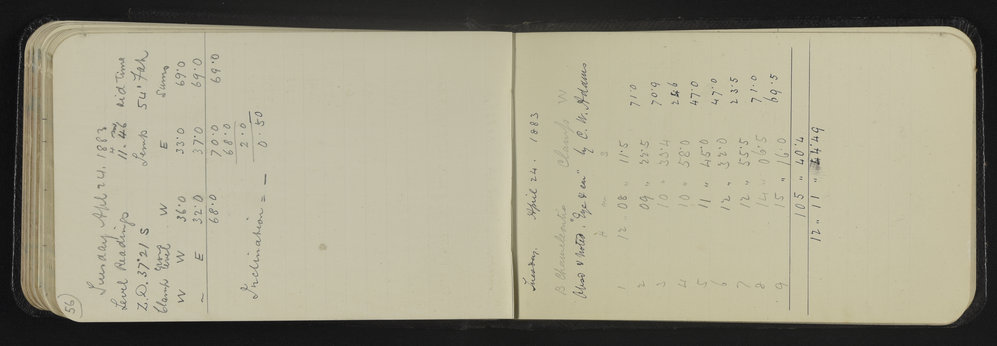 56
Tuesday. Apl 24. 1883
Level Readings 11h 46m Sid Time
Z.D. 37°21 S Temp 54° Fah
Clamp Level W E Sums
W W 36.0 33.0 69.0
" E 32.0 37.0 69.0
68.0 70.0 69.0
68.0
2.0
Inclination = — 0.50
Tuesday. April 24. 1883
B Chamaeleontis Clamp W
Obsd & noted "Eye & ear" by C. W. Adams
h m s
1 12 . 08 " 11.5 71.0
2 09 " 22.5 70.9
3 10 " 33.4 24.6
4 10 " 58.0 47.0
5 11 " 45.0 47.0
6 12 " 32.0 23.5
7 12 " 55.5 71.0
8 14 " 06.5 69.5
9 15 " 16.0
105 " 40.4
12 " 11 " 44.49